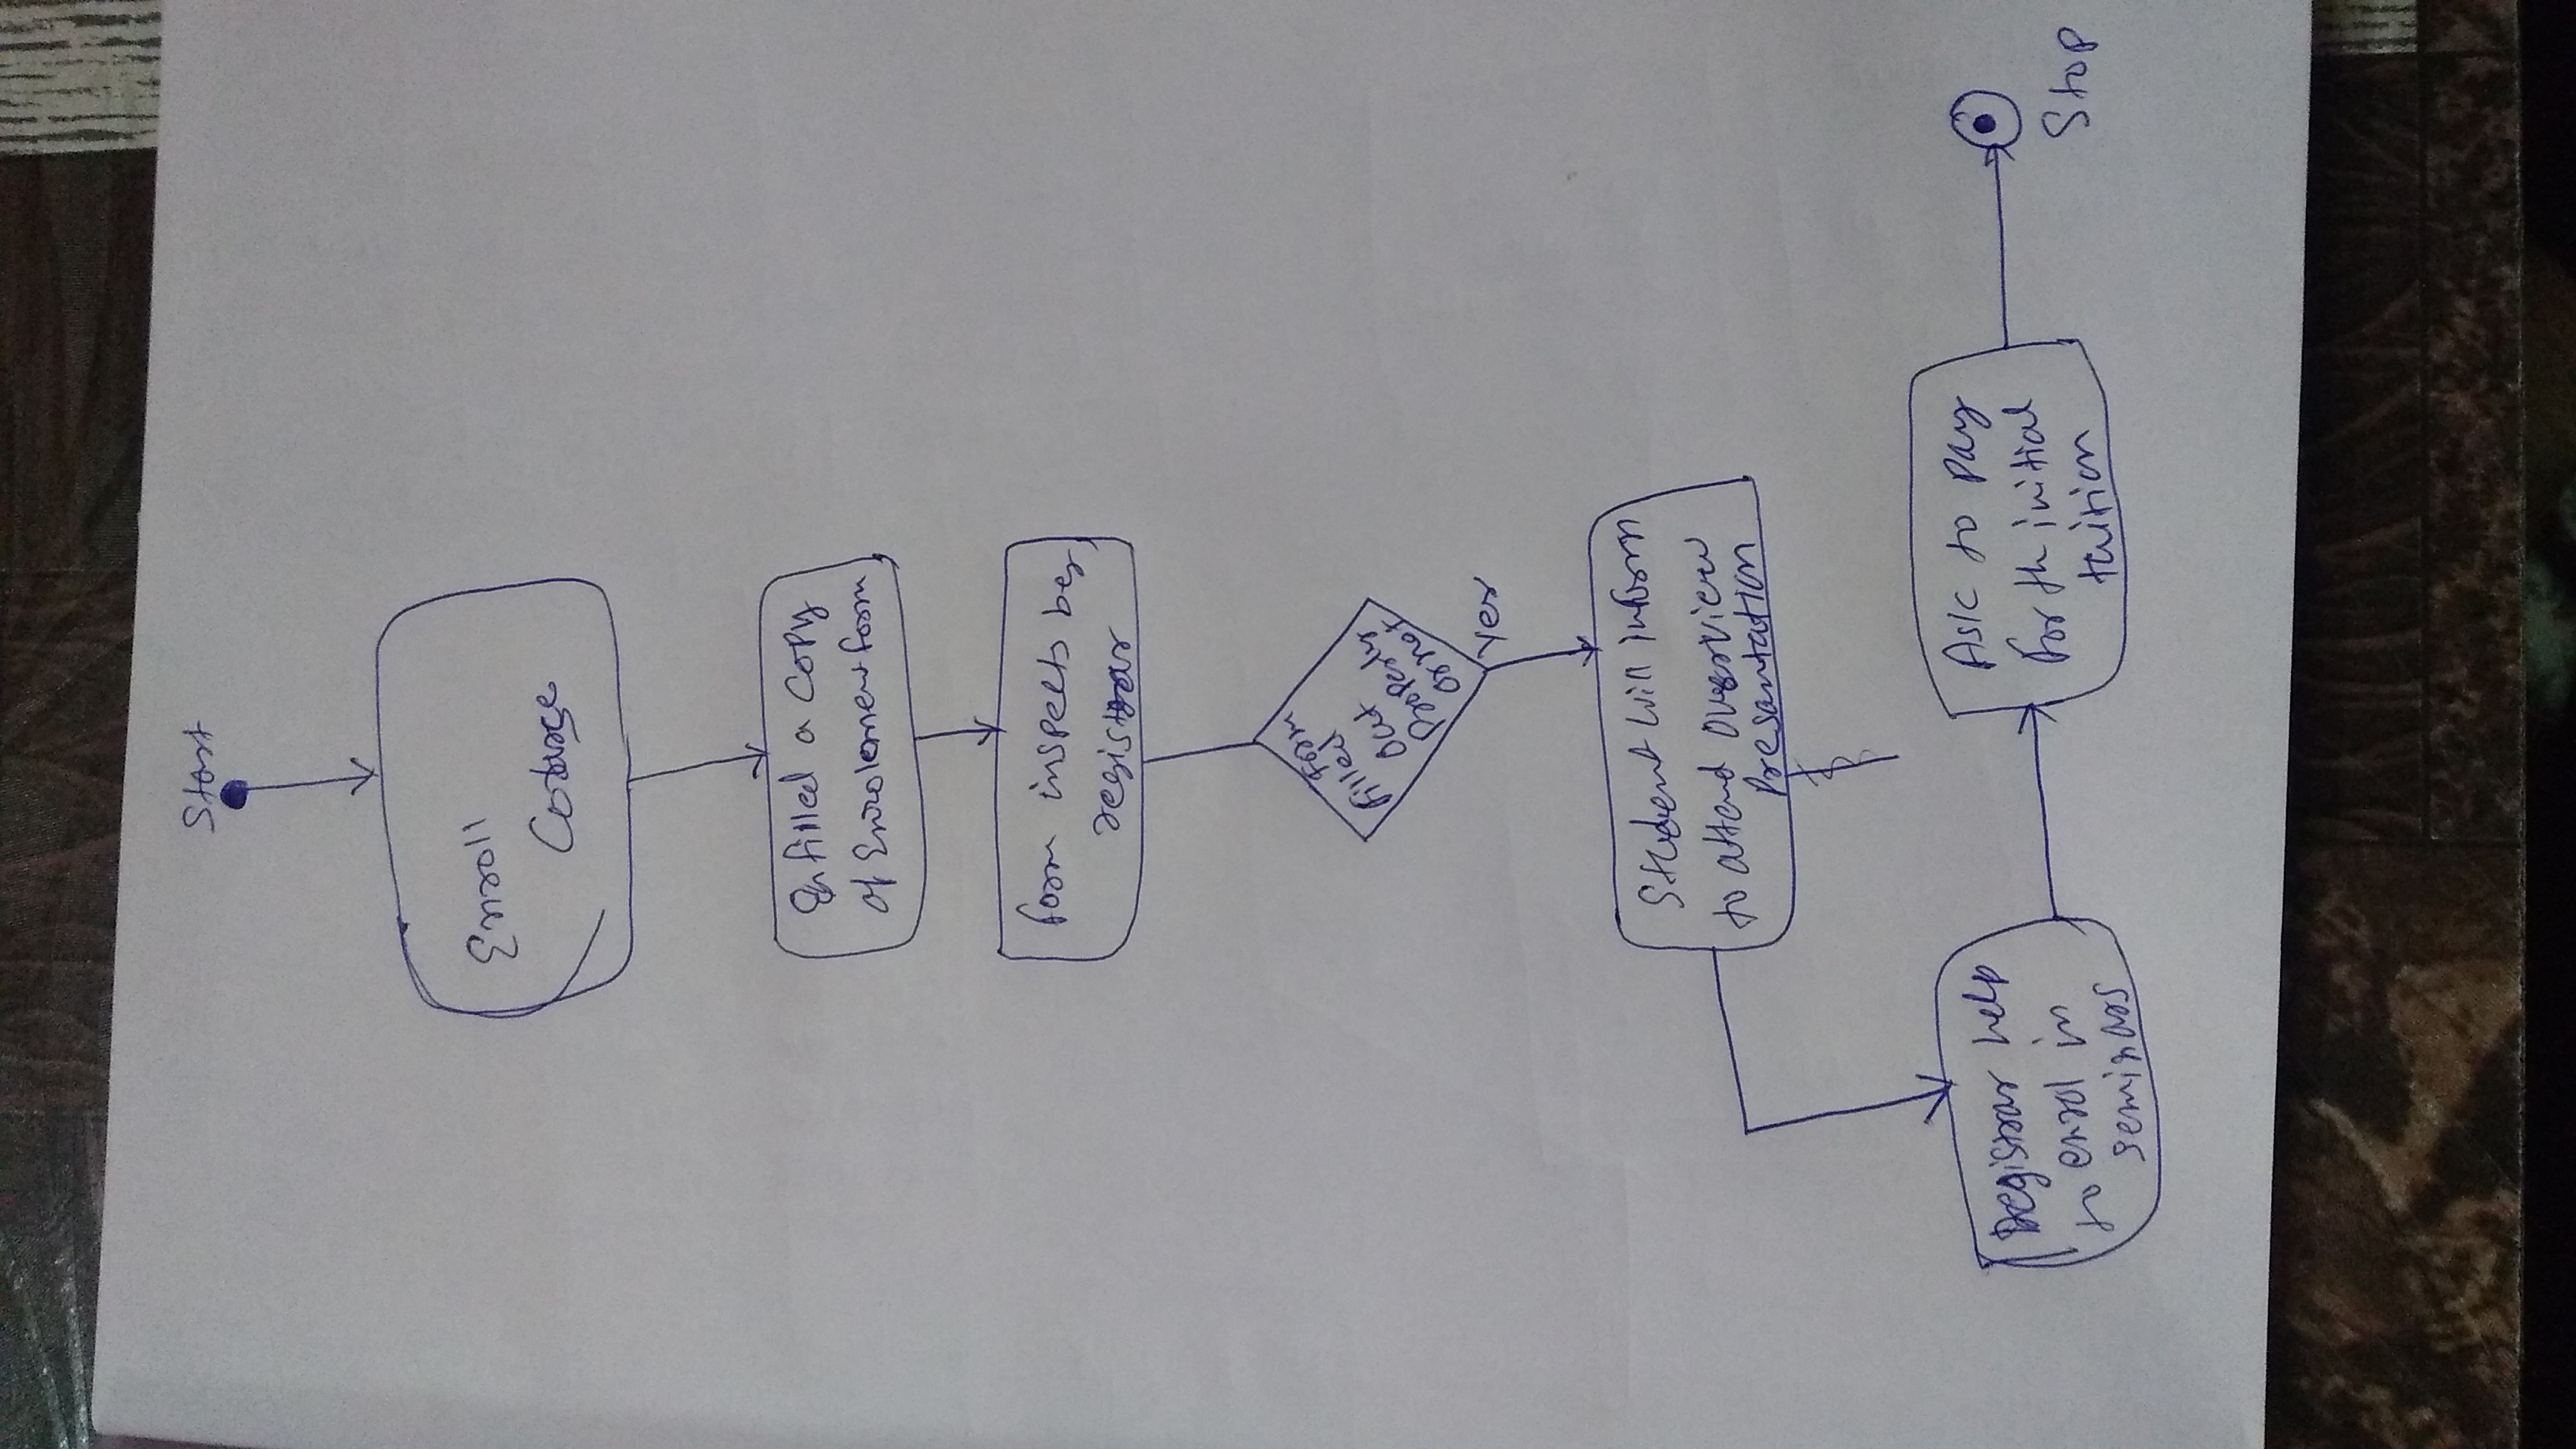 Start
Enroll
Course
filled a copy
of Enrolement form
form inspects by
registrar
Form
filled
out
Properly
or not
Yes
Student will inform
to attend overview
Presantation
Registrar help
to enrol in
seminars
Ask to pay
for th initial
tuition
Stop